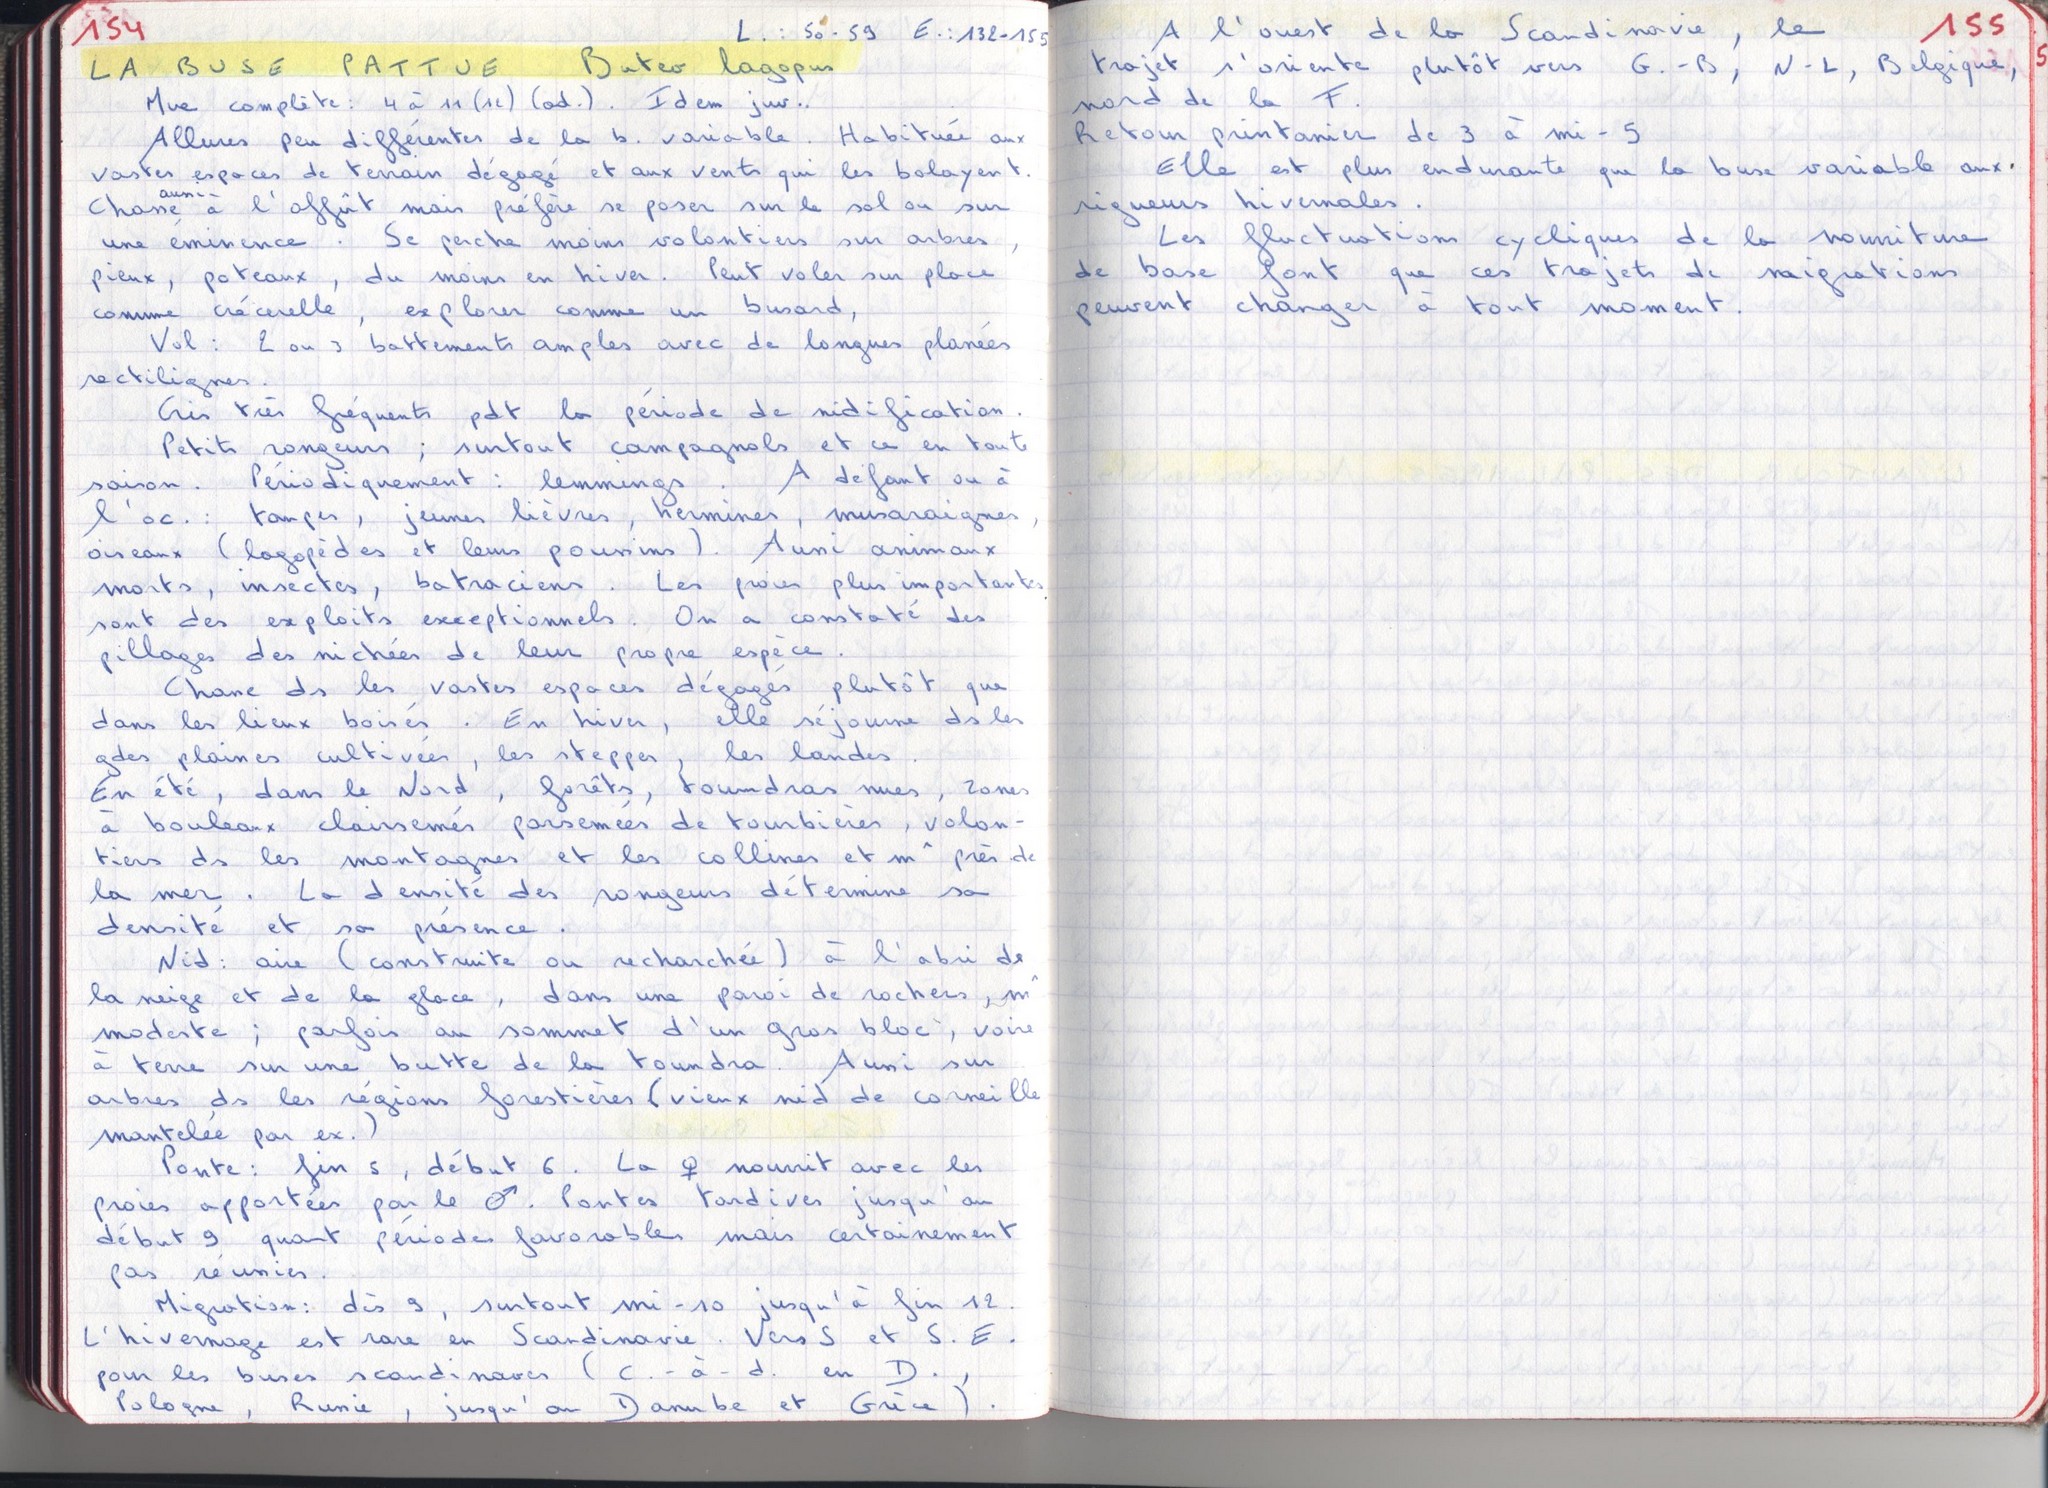 154
L. : 50-59 E. : 132-155
LA BUSE PATTUE Buteo lagopus
Mue complète : 4 à 11 (12) (ad.). Idem juv..
Allures peu différentes de la b. variable. Habituée aux
vastes espaces de terrain dégagé et aux vents qui les balayent.
Chasse aussi à l'affût mais préfère se poser sur le sol ou sur
une éminence. Se perche moins volontiers sur arbres,
pieux, poteaux, du moins en hiver. Peut voler sur place
comme crécerelle, explorer comme un busard,
Vol : 2 ou 3 battements amples avec de longues planées
rectilignes.
Cris très fréquents pdt la période de nidification.
Petits rongeurs ; surtout campagnols et ce en toute
saison. Périodiquement : lemmings. A défaut ou à
l'oc. : taupes, jeunes lièvres, hermines, musaraignes,
oiseaux (lagopèdes et leurs poussins). Aussi animaux
morts, insectes, batraciens. Les proies plus importantes
sont des exploits exceptionnels. On a constaté des
pillages des nichées de leur propre espèce.
Chasse ds les vastes espaces dégagés plutôt que
dans les lieux boisés. En hiver, elle séjourne ds les
gdes plaines cultivées, les steppes, les landes.
En été, dans le Nord, forêts, toundras nues, zones
à bouleaux clairsemés parsemées de tourbières, volon-
tiers ds les montagnes et les collines et m^ près de
la mer. La densité des rongeurs détermine sa
densité et sa présence.
Nid : aire (construite ou recharchée) à l'abri de
la neige et de la glace, dans une paroi de rochers, m^
modeste ; parfois au sommet d'un gros bloc, voire
à terre sur une butte de la toundra. Aussi sur
arbres ds les régions forestières (vieux nid de corneille
mantelée par ex.)
Ponte : fin 5, début 6. La ♀ nourrit avec les
proies apportées par le ♂. Pontes tardives jusqu'au
début 9 quant périodes favorables mais certainement
pas réunies.
Migration : dès 9, surtout mi-10 jusqu'à fin 12.
L'hivernage est rare en Scandinavie. Vers S et S.E.
pour les buses scandinaves (c.-à-d. en D.,
Pologne, Russie, jusqu'au Danube et Grèce).
155
A l'ouest de la Scandinavie, le
trajet s'oriente plutôt vers G.-B, N-L, Belgique,
nord de la F.
Retour printanier de 3 à mi-5
Elle est plus endurante que la buse variable aux
rigueurs hivernales.
Les fluctuations cycliques de la nourriture
de base font que ces trajets de migrations
peuvent changer à tout moment.
5